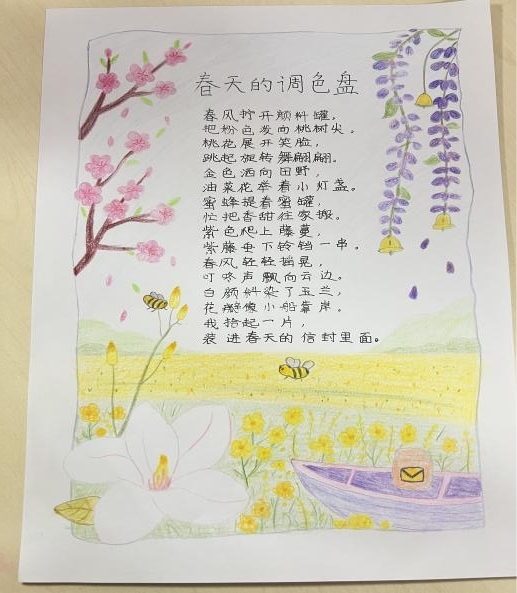 春天的调色盘
春风拧开颜料罐,
把粉色泼向桃树尖。
桃花展开笑脸,
跳起旋转舞翩翩。
金色洒向田野,
油菜花举着小灯盏。
蜜蜂提着蜜罐,
忙把香甜往家搬。
紫色爬上藤蔓,
紫藤垂下铃铛一串。
春风轻轻摇晃,
叮咚声飘向云边。
白颜料染了玉兰,
花瓣像小船靠岸。
我拾起一片,
装进春天的信封里面。